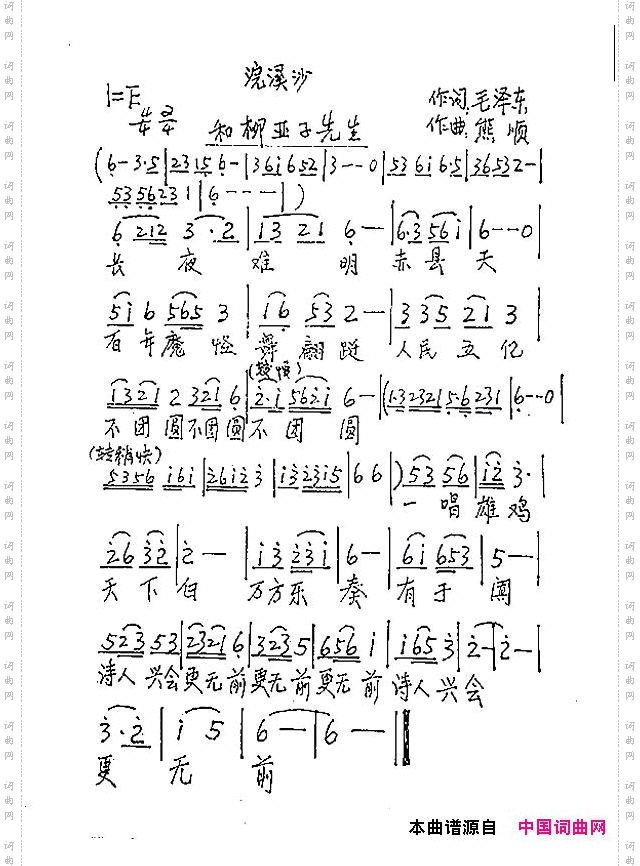 浣溪沙
1=E 4/4 2/4
作词 毛泽东
和柳亚子先生
作曲 熊顺
(6- 3·5|2315 6-|361652|3--0|5361 6·5|36532-|
5356231|6---|)
6 212 3·2|13 21 6-|6·3 561|6--0
长 夜 难 明 赤县 天
516 565 3|16 53 2-|3 35 21 3
百年魔 怪 舞翩跹 人民五亿
(较慢)
1321 2 321 6|2·1 5621 6-|(1·32321 5·6 231|6--0
不团圆不团圆不 团 圆
(转稍快)
5356 161|2612 3|132315|66|)53 56|12 3·|
一 唱雄鸡
26 32|2-|13 231|6-|61 653|5-|
天下 白 万方乐 奏 有于 阗
523 53|2321 6|323 5|656 1|165 3|2-|2-|
诗人 兴会更无 前更无 前更无 前 诗人 兴会
3·2|1 5|6-|6-‖
更 无 前
本曲谱源自 中国词曲网
词曲网